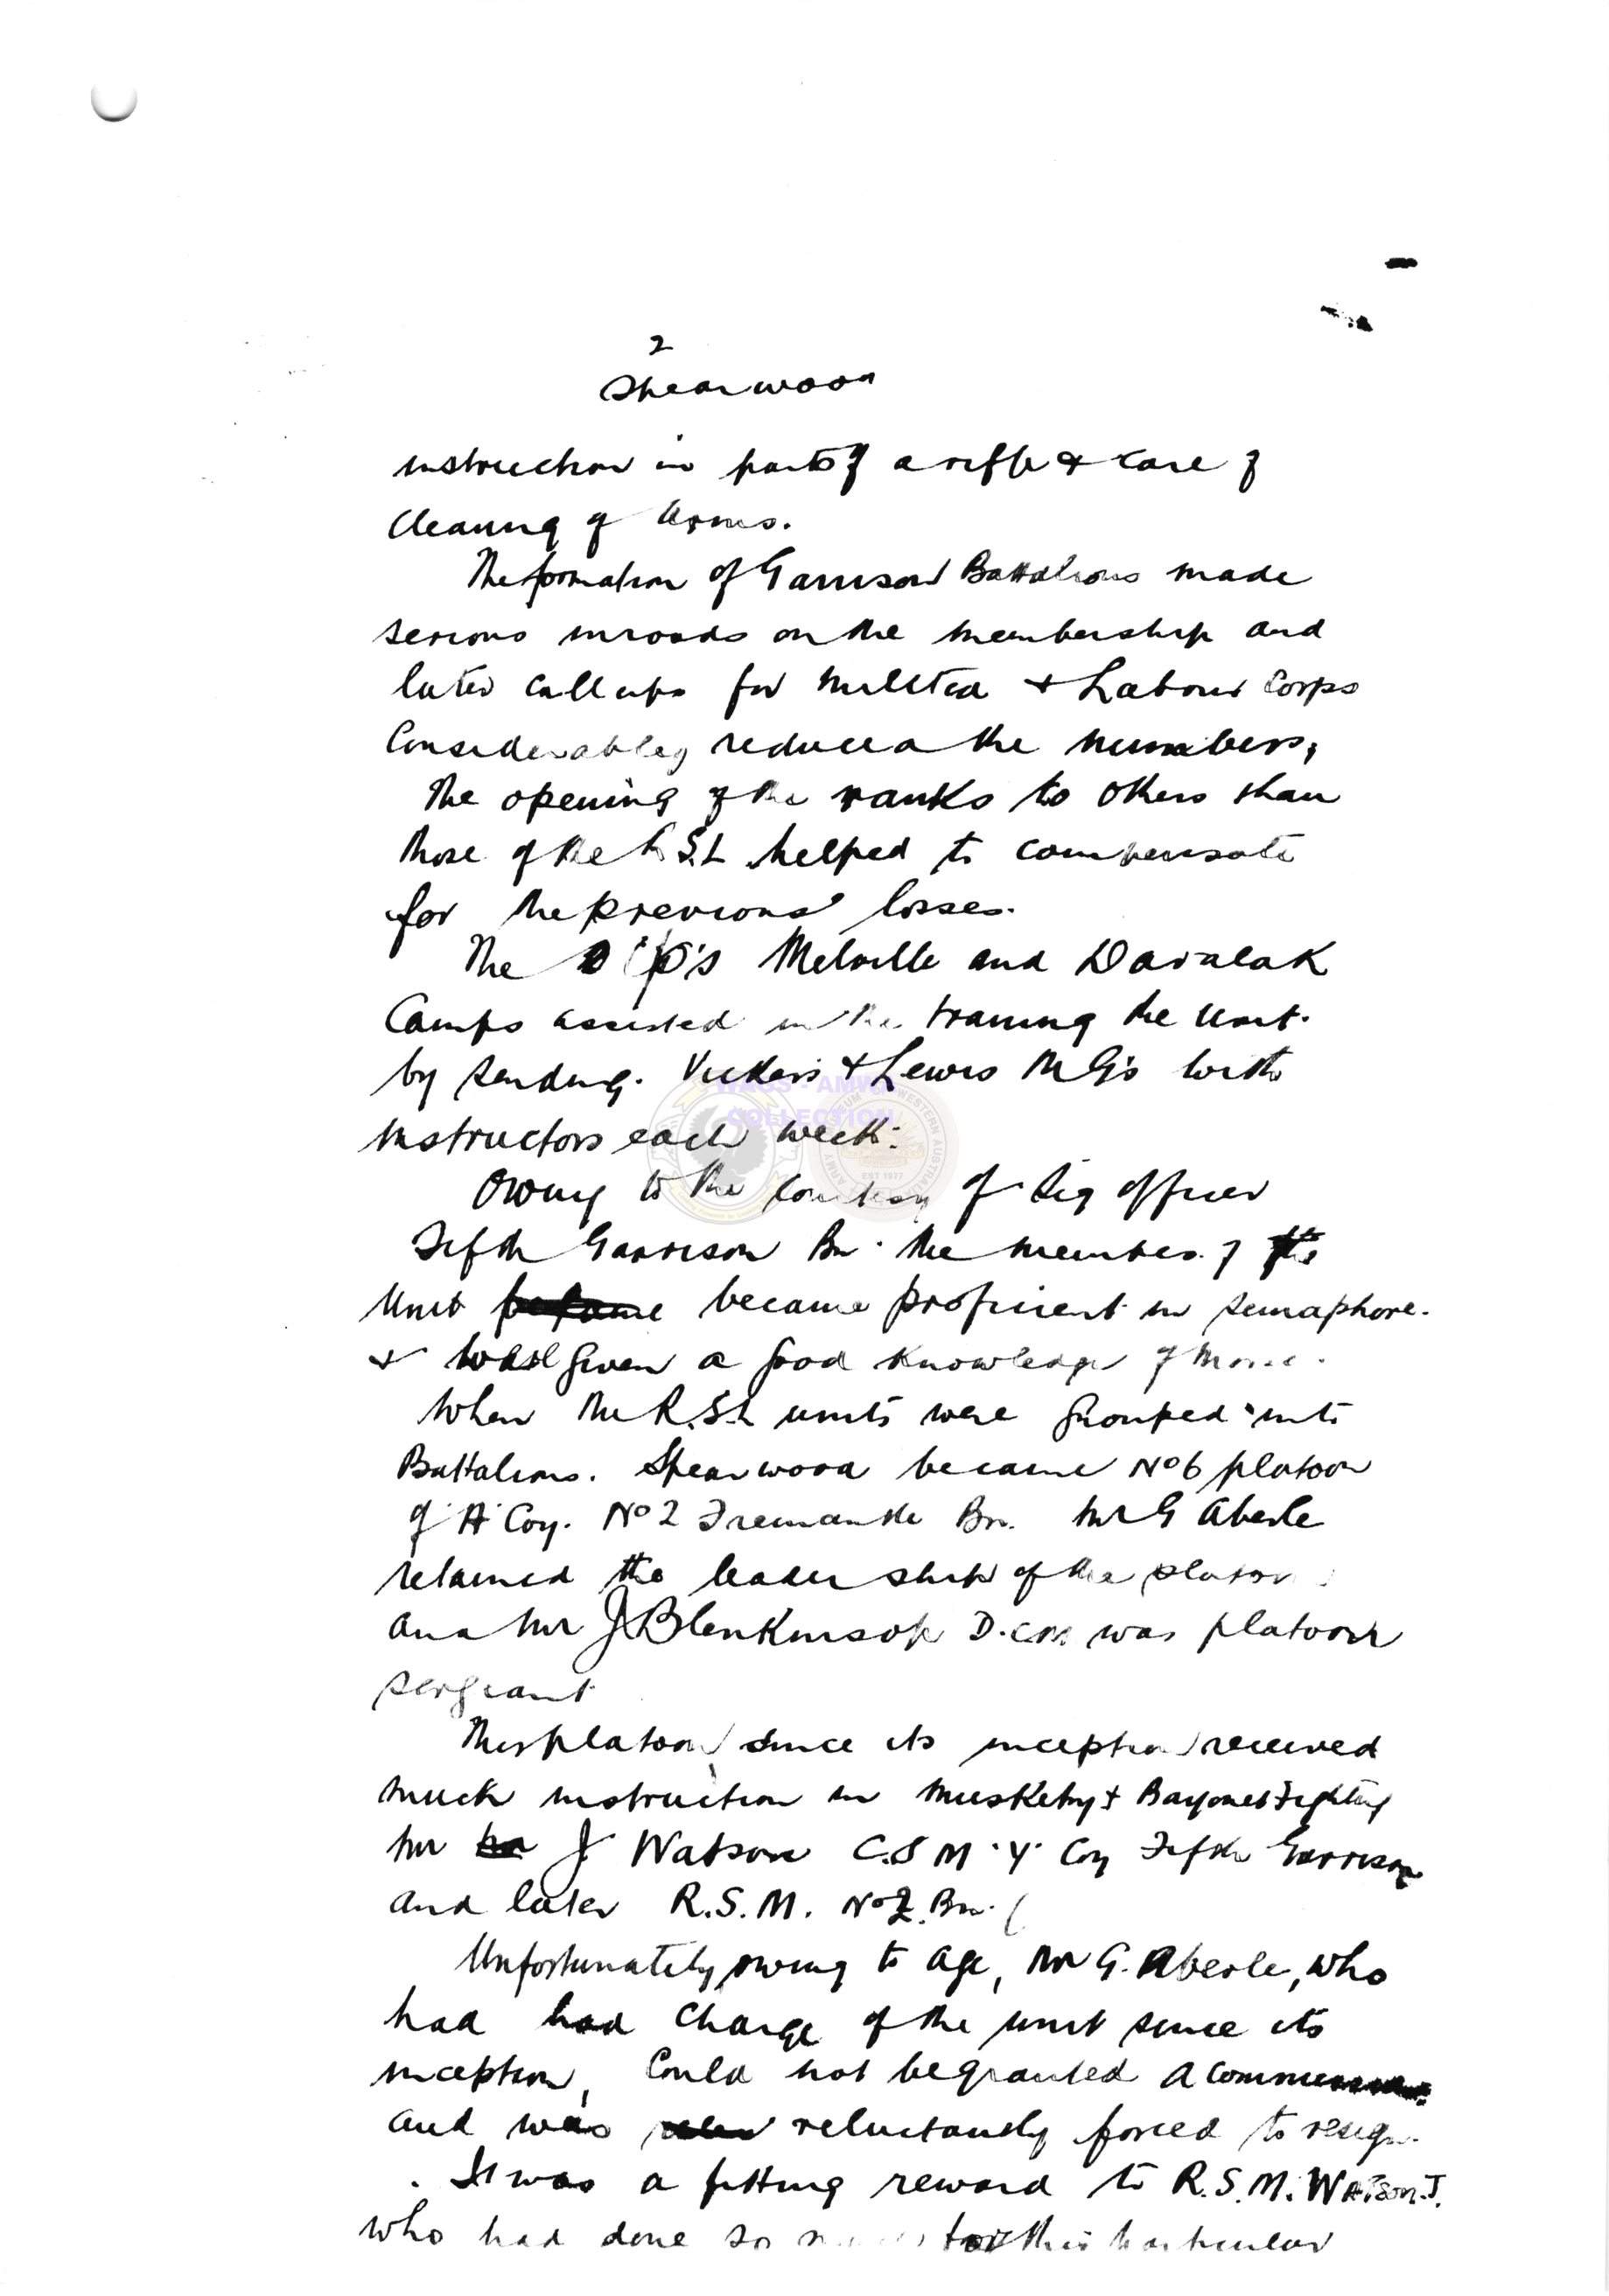 2
Spearwood
instruction in parts of a rifle & care of
cleaning of Arms.
The formation of Garrison Battalions made
serious inroads on the membership and
later call ups for militia & Labour Corps
Considerabley reduced the numbers,
The opening of the ranks to others than
those of the R.S.L helped to compensate
for the previous losses.
The Melville and Davalak
Camps assisted in the training the unit.
by sending. Vickers & Lewis M G's with
instructors each week.
WAGS - AMWA
COLLECTION
Owing to the courtesy of Sig Officer
Fifth Garrison Bn. the members of the
Unit became proficient in semaphore.
& was given a good knowledge of morse.
When the R.S.L units were grouped into
Battalions. Spearwood became No 6 platoon
of 'A' Coy. No 2 Fremantle Bn. Mr G Aberle
retained the leadership of the platoon
and Mr J Blenkinsop D.C.M was platoon
sergeant
This platoon since its inception received
much instruction in musketry & Bayonet Fighting
Mr J Watson C.S M 'Y' Coy Fifth Garrison
and later R.S.M. No 2. Bn. (
Unfortunately, owing to age, Mr G. Aberle, who
had had charge of the unit since its
inception, Could not be granted a
and was reluctantly forced to resign.
. It was a fitting reward to R.S.M. Watson. J.
who had done so for this particular